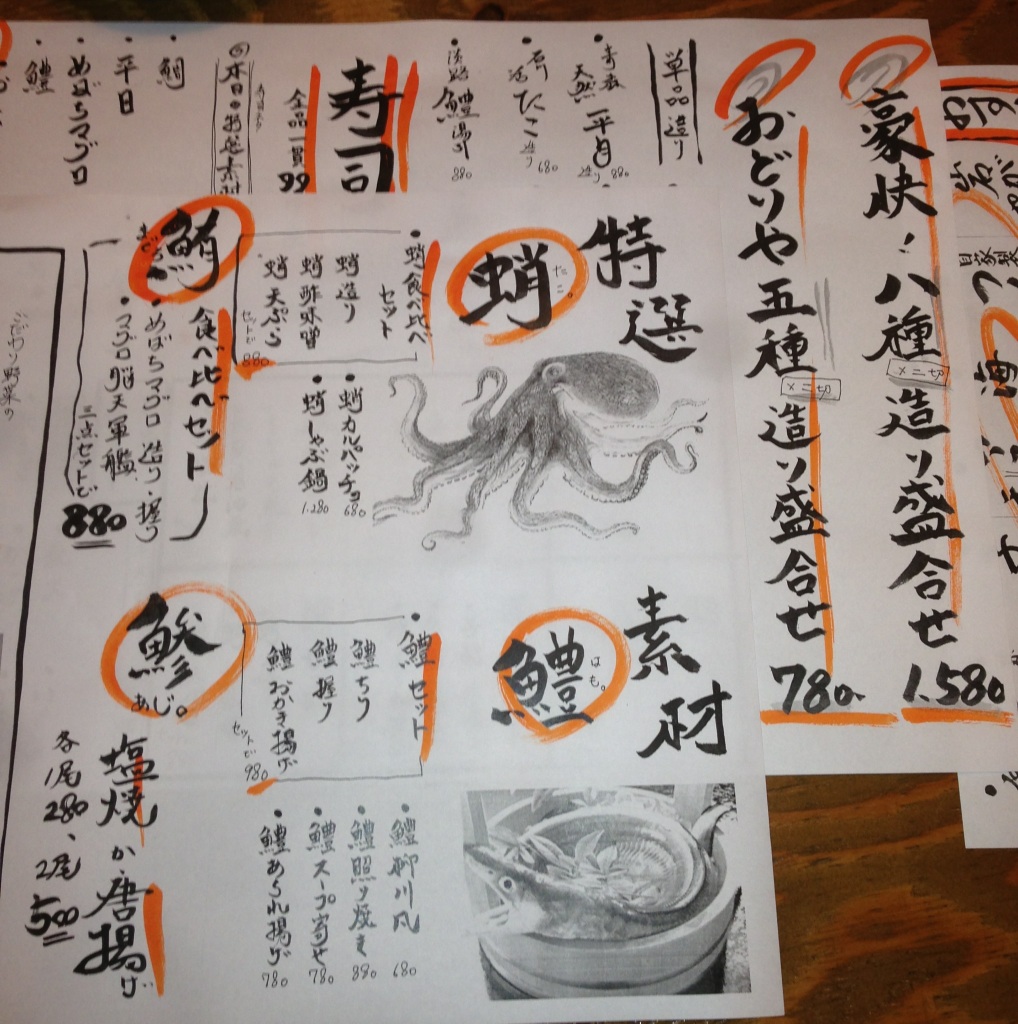 豪快!八種造り盛合せ
×二切
1.580
おどりや五種造り盛合せ
×二切
780.
単品造り
天然 平目 造り 880
たこ 造り 680
淡路 鱧湯引 880
寿司
全品一貫
99
本日のお造り素材
鯛
平目
めばちマグロ
鱧
自家製
特選
蛸
たこ。
・蛸食べ比べ
セット
蛸造り
蛸酢味噌
蛸天ぷら
セットで
880
・蛸カルパッチョ 680
・蛸しゃぶ鍋 1.280
鮪
まぐろ
食べ比べセット
・めばちマグロ 造り・握り
・マグロ脳天軍艦
三点セットで
880
素材
鱧
はも。
・鱧セット
鱧ちり
鱧握り
鱧おかき揚げ
セットで
980
・鱧柳川風 680
・鱧照り焼き 880
・鱧スープ寄せ 780
・鱧あられ揚げ 780
鯵
あじ。
塩焼か、唐揚げ
各1尾280、
2尾500